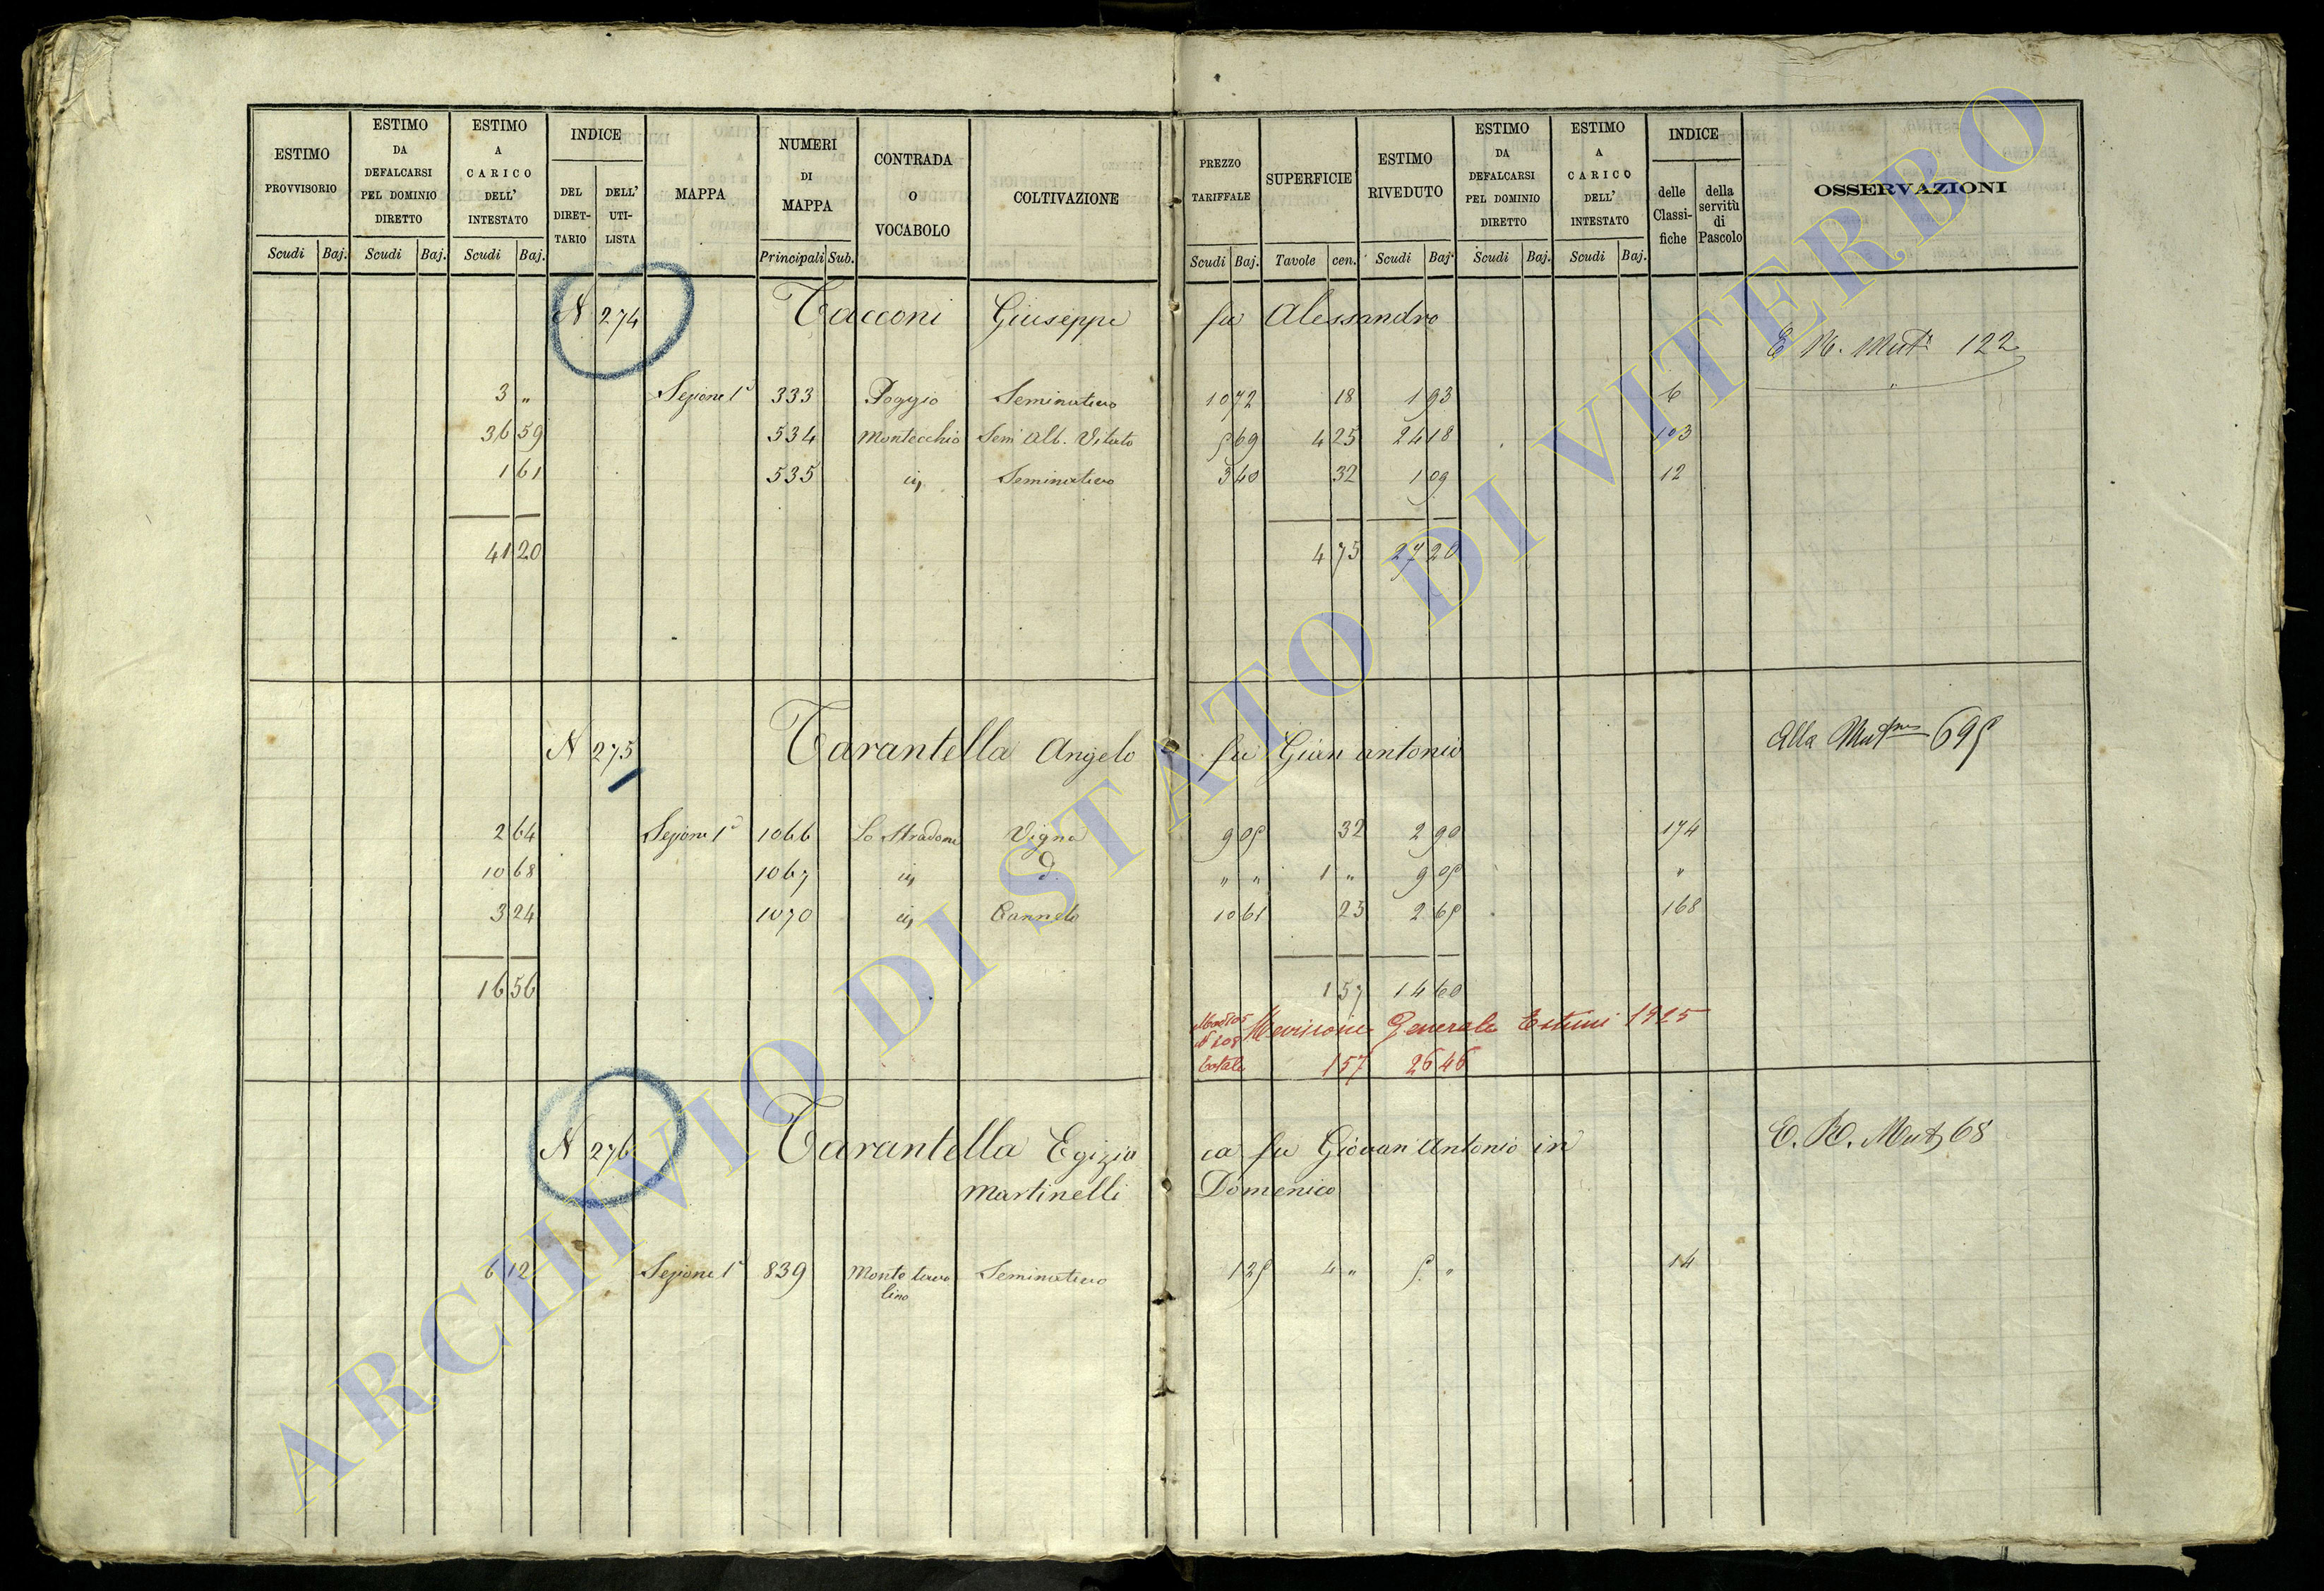 ESTIMO PROVVISORIO
ESTIMO DA DEFALCARSI PEL DOMINIO DIRETTO
ESTIMO A CARICO DELL' INTESTATO
INDICE
DEL DIRET-TARIO
DELL' UTI-LISTA
MAPPA
NUMERI DI MAPPA
CONTRADA O VOCABOLO
COLTIVAZIONE
PREZZO TARIFFALE
SUPERFICIE
ESTIMO RIVEDUTO
ESTIMO DA DEFALCARSI PEL DOMINIO DIRETTO
ESTIMO A CARICO DELL' INTESTATO
INDICE
delle Classi-fiche
della servitù di Pascolo
OSSERVAZIONI
Scudi Baj. Scudi Baj. Scudi Baj. Principali Sub. Scudi Baj. Tavole cen. Scudi Baj. Scudi Baj. Scudi Baj.
N 274 Tacconi Giuseppe fu Alessandro
E N. Mut. 122
3 " Sezione 1ª 333 Poggio Seminativo 10 72 18 1 93 6
36 59 534 Montecchio Sem Alb. Vitato 5 69 4 25 24 18 103
1 61 535 id Seminativo 3 40 32 1 09 12
41 20 4 75 27 20
N 275 Tarantella Angelo fu Gian Antonio Alla Mutne 695
2 64 Sezione 1ª 1066 Lo Stradone Vigna 9 05 32 2 90 174
10 68 1067 id d. " " 1 " 9 05 "
3 24 1070 id Canneto 10 61 25 2 65 168
16 56 1 57 14 60
Revisione Generale Estimi 1925
Totale 1 57 26 46
N 276 Tarantella Egizia ca fu Giovan Antonio in E. N. Mut 68
Martinelli Domenico
6 12 Sezione 1ª 839 Seminativo 1 25 4 " 5 " 14
ARCHIVIO DI STATO DI VITERBO